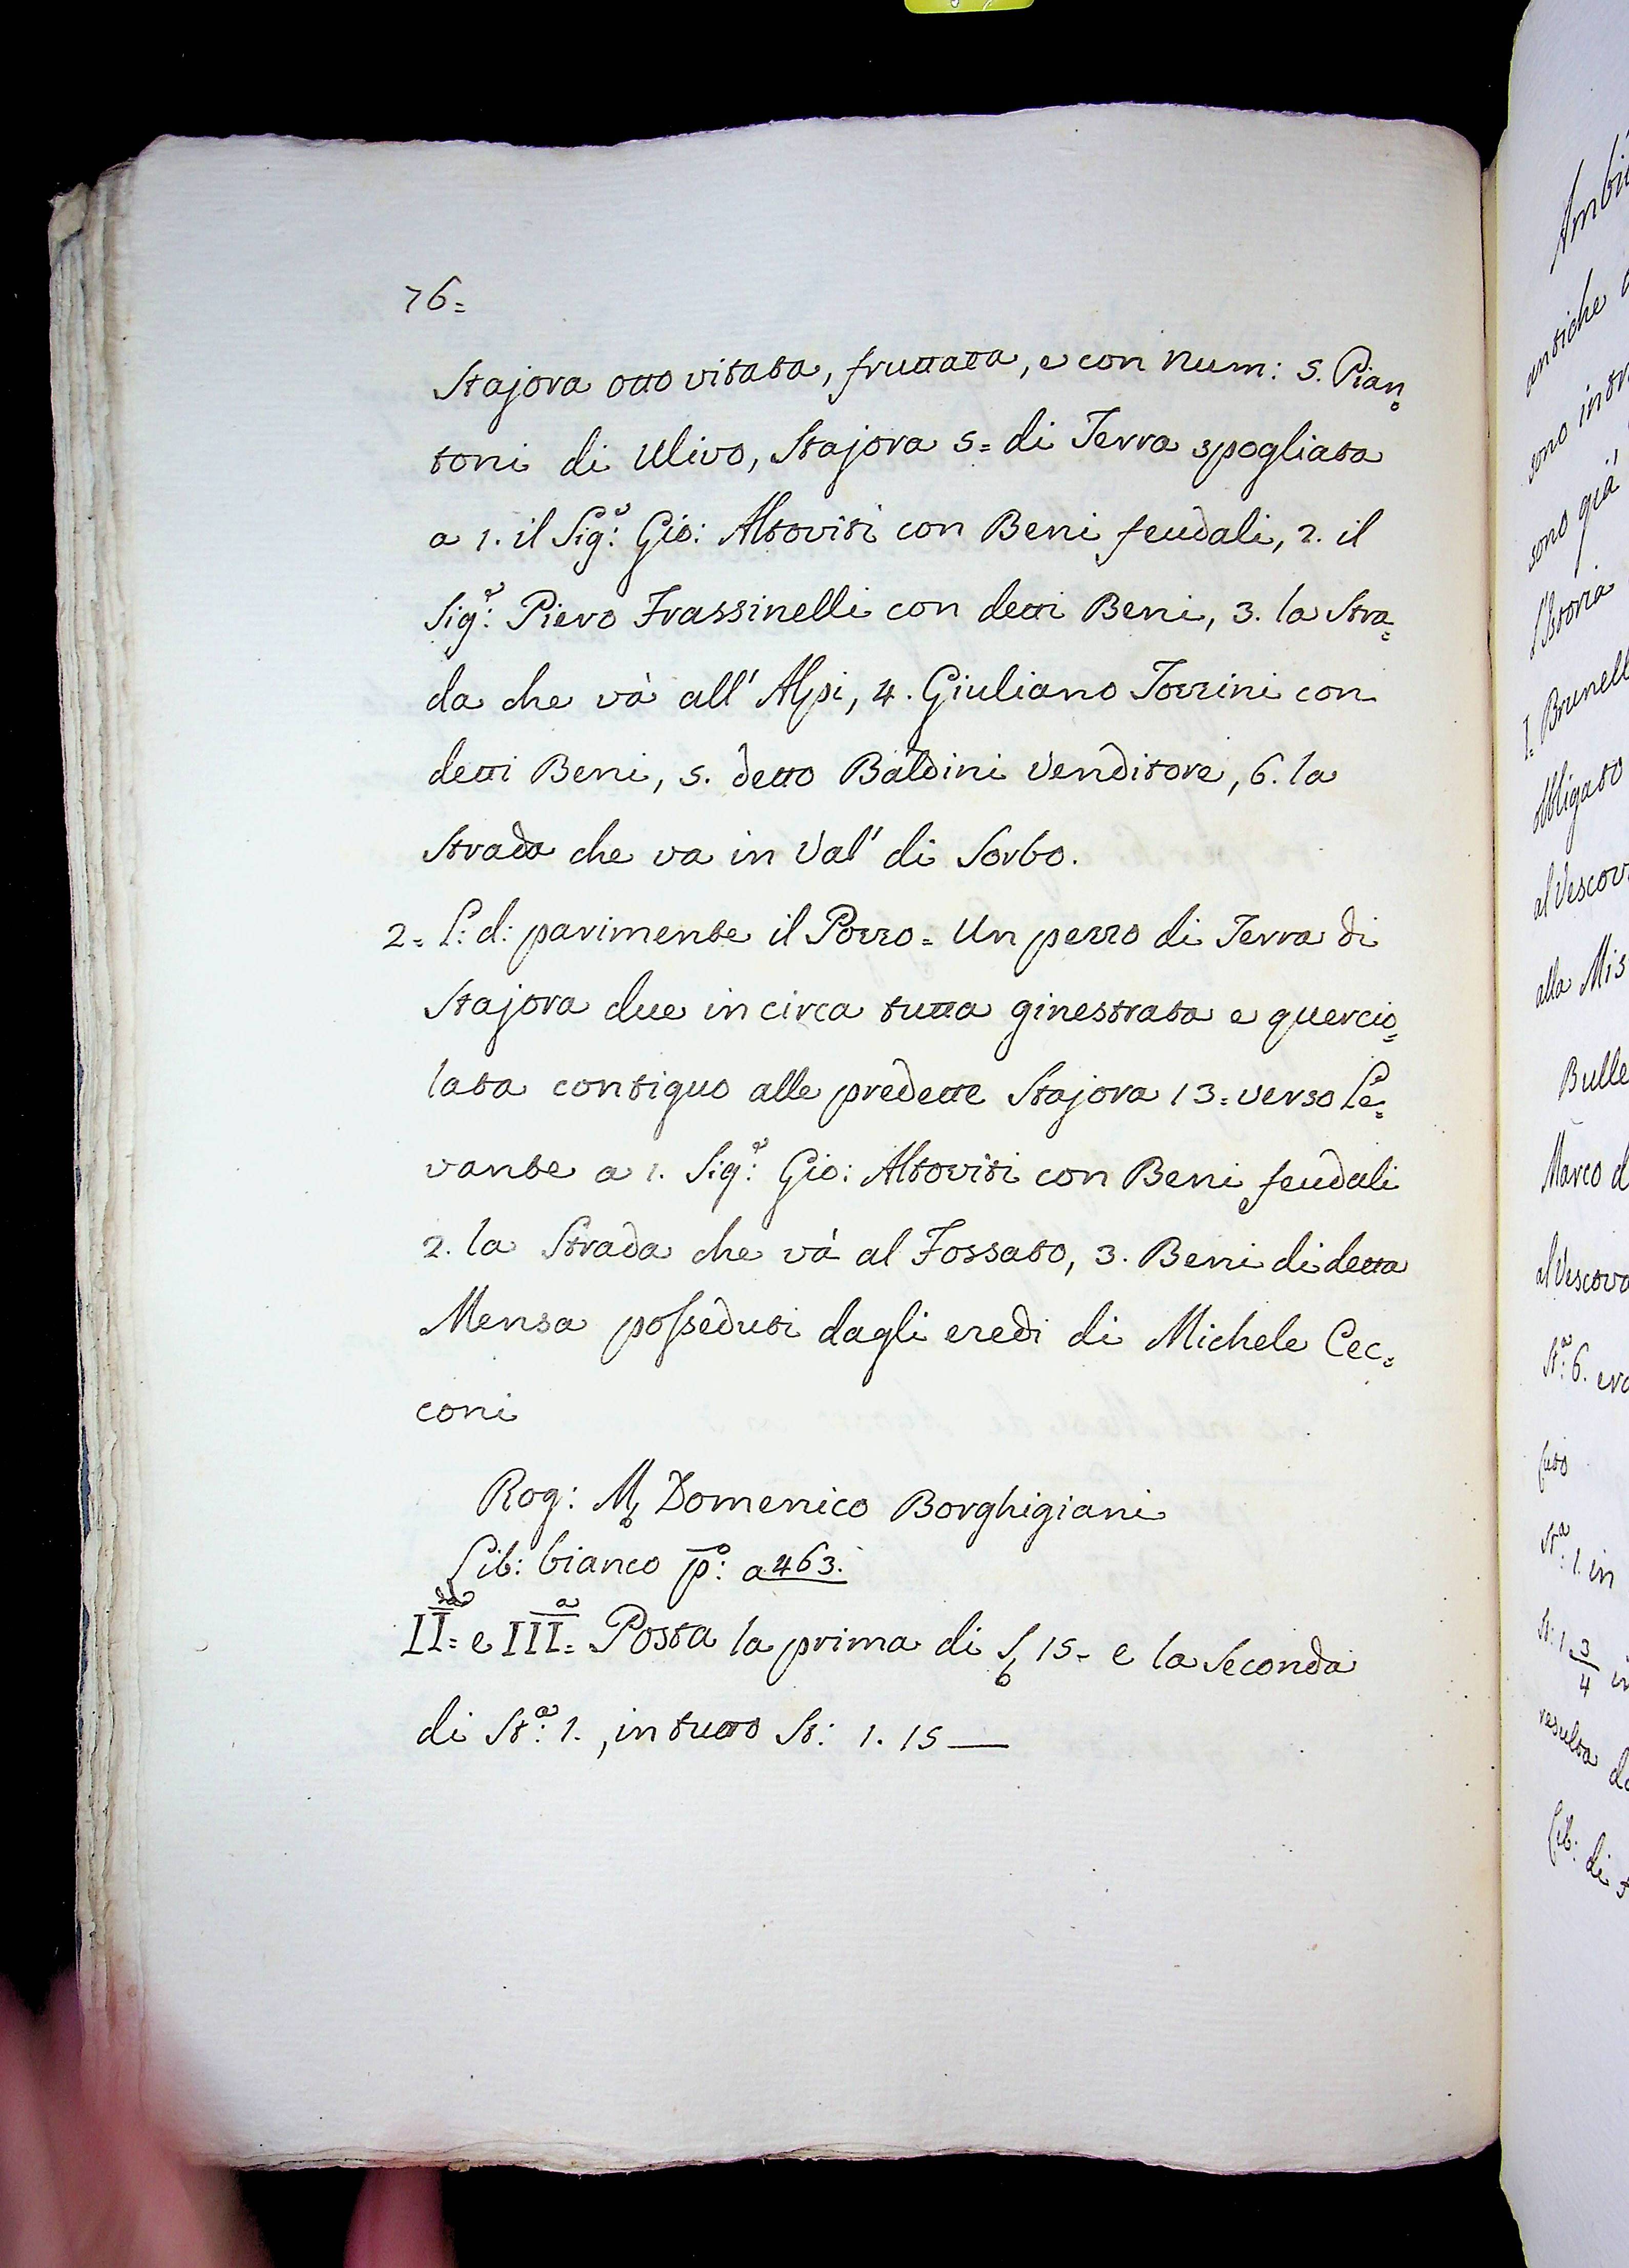 76=
Stajora otto vitata, fruttata, e con Num: 5. Pian=
toni di Ulivo, Stajora 5= di Terra spogliata
a 1. il Sig.e: Gio: Altoviti con Beni feudali, 2. il
Sig.e: Piero Frassinelli con detti Beni, 3. la Stra=
da che và all' Alpi, 4. Giuliano Torrini con
detti Beni, 5. detto Baldini Venditore, 6. la
Strada che va in Val' di Sorbo.
2= L: d: parimente il Pozzo= Un pezzo di Terra di
Stajora due in circa tutta ginestrata e quercio=
lata contiguo alle predette Stajora 13= verso Le=
vante a 1. Sig.e: Gio: Altoviti con Beni feudali
2. la Strada che và al Fossato, 3. Beni di detta
Mensa posseduti dagli eredi di Michele Cec=
coni
Rog: M. Domenico Borghigiani
Lib: bianco p.o: a 463.
II.da= e III.a= Posta la prima di 15= e la Seconda
di St.a: 1., in tutto St: 1. 15 —
Ambi
antiche
sono
sono già
l'Istoria
1= Brunell
obbligato
al Vescov
alla Mis
Bulle
Marco d
al Vescovo
St.a: 6. era
St.a: 1. in
St: 1 3/4 in
resulta da
Lib: di